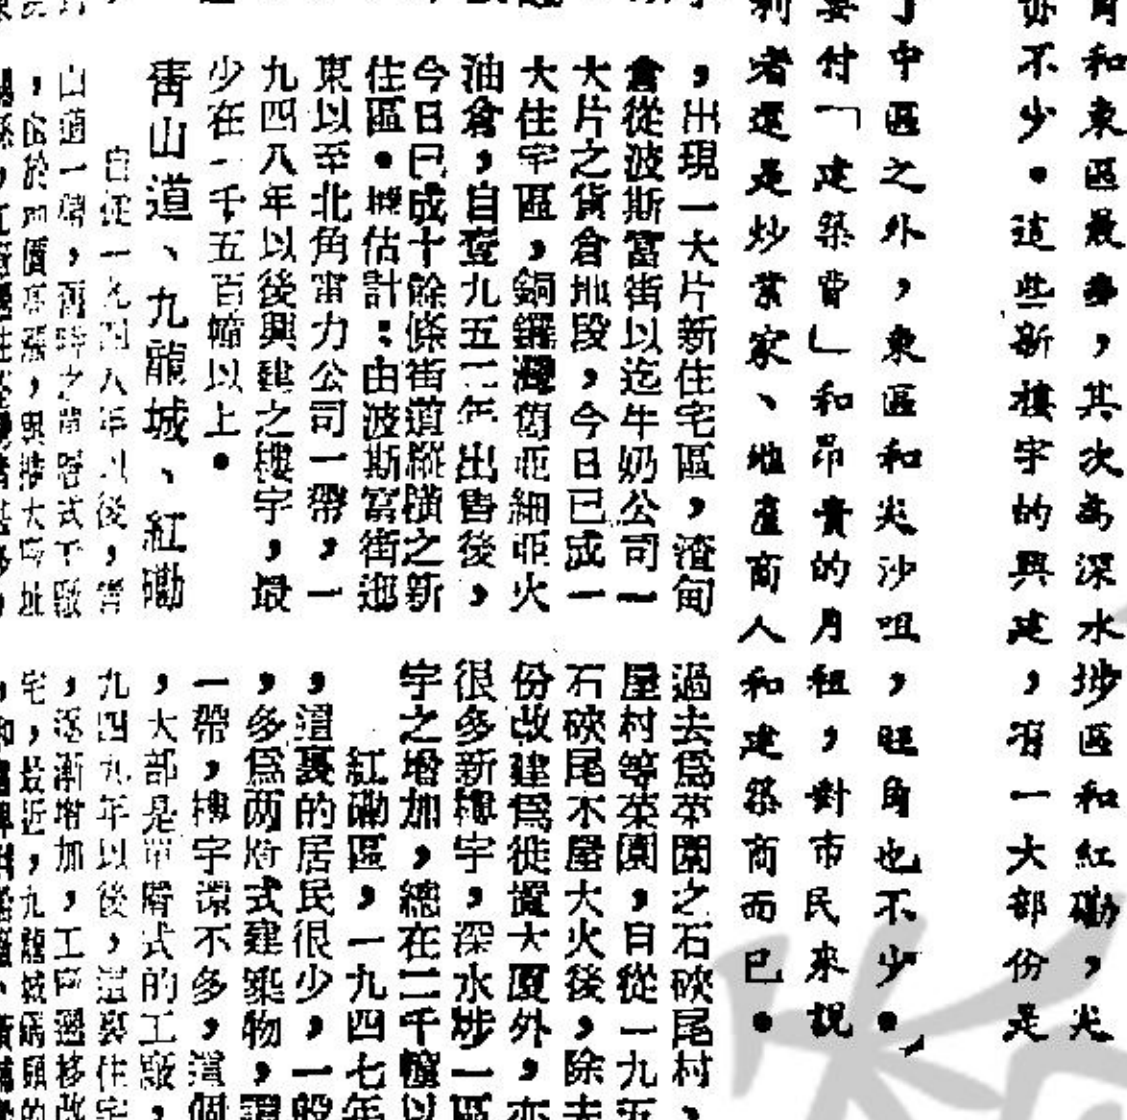 角和東區最多,其次為深水埗區和紅磡,尖
亦不少。這些新樓宇的興建,有一大部份是
了中區之外,東區和尖沙咀,旺角也不少。
要付「建築費」和昂貴的月租,對市民來說
利者還是炒業家、地產商人和建築商而已。
,出現一大片新住宅區,渣甸
倉從波斯富街以迄牛奶公司一
大片之貨倉地段,今日已成一
大住宅區,銅鑼灣舊亞細亞火
油倉,自壹九五二年出售後,
今日已成十餘條街道縱橫之新
住區。據估計:由波斯富街迤
東以至北角電力公司一帶,一
九四八年以後興建之樓宇,最
少在一千五百幢以上。
青山道、九龍城、紅磡
自從一九四八年以後,青
山道一帶,舊時之單層式平廠
過去爲菜園之石硤尾村、
屋村等菜園,自從一九五
石硤尾木屋大火後,除去
份改建爲徙置大厦外,亦
很多新樓宇,深水埗一區
宇之增加,總在二千幢以
紅磡區,一九四七年
,這裏的居民很少,一般
,多爲两層式建築物,
一帶,樓宇還不多,這個
,大部是單層式的工廠,
九四九年以後,這裏住宅
,逐漸增加,工廠遷移改
宅,最近,九龍城碼頭的